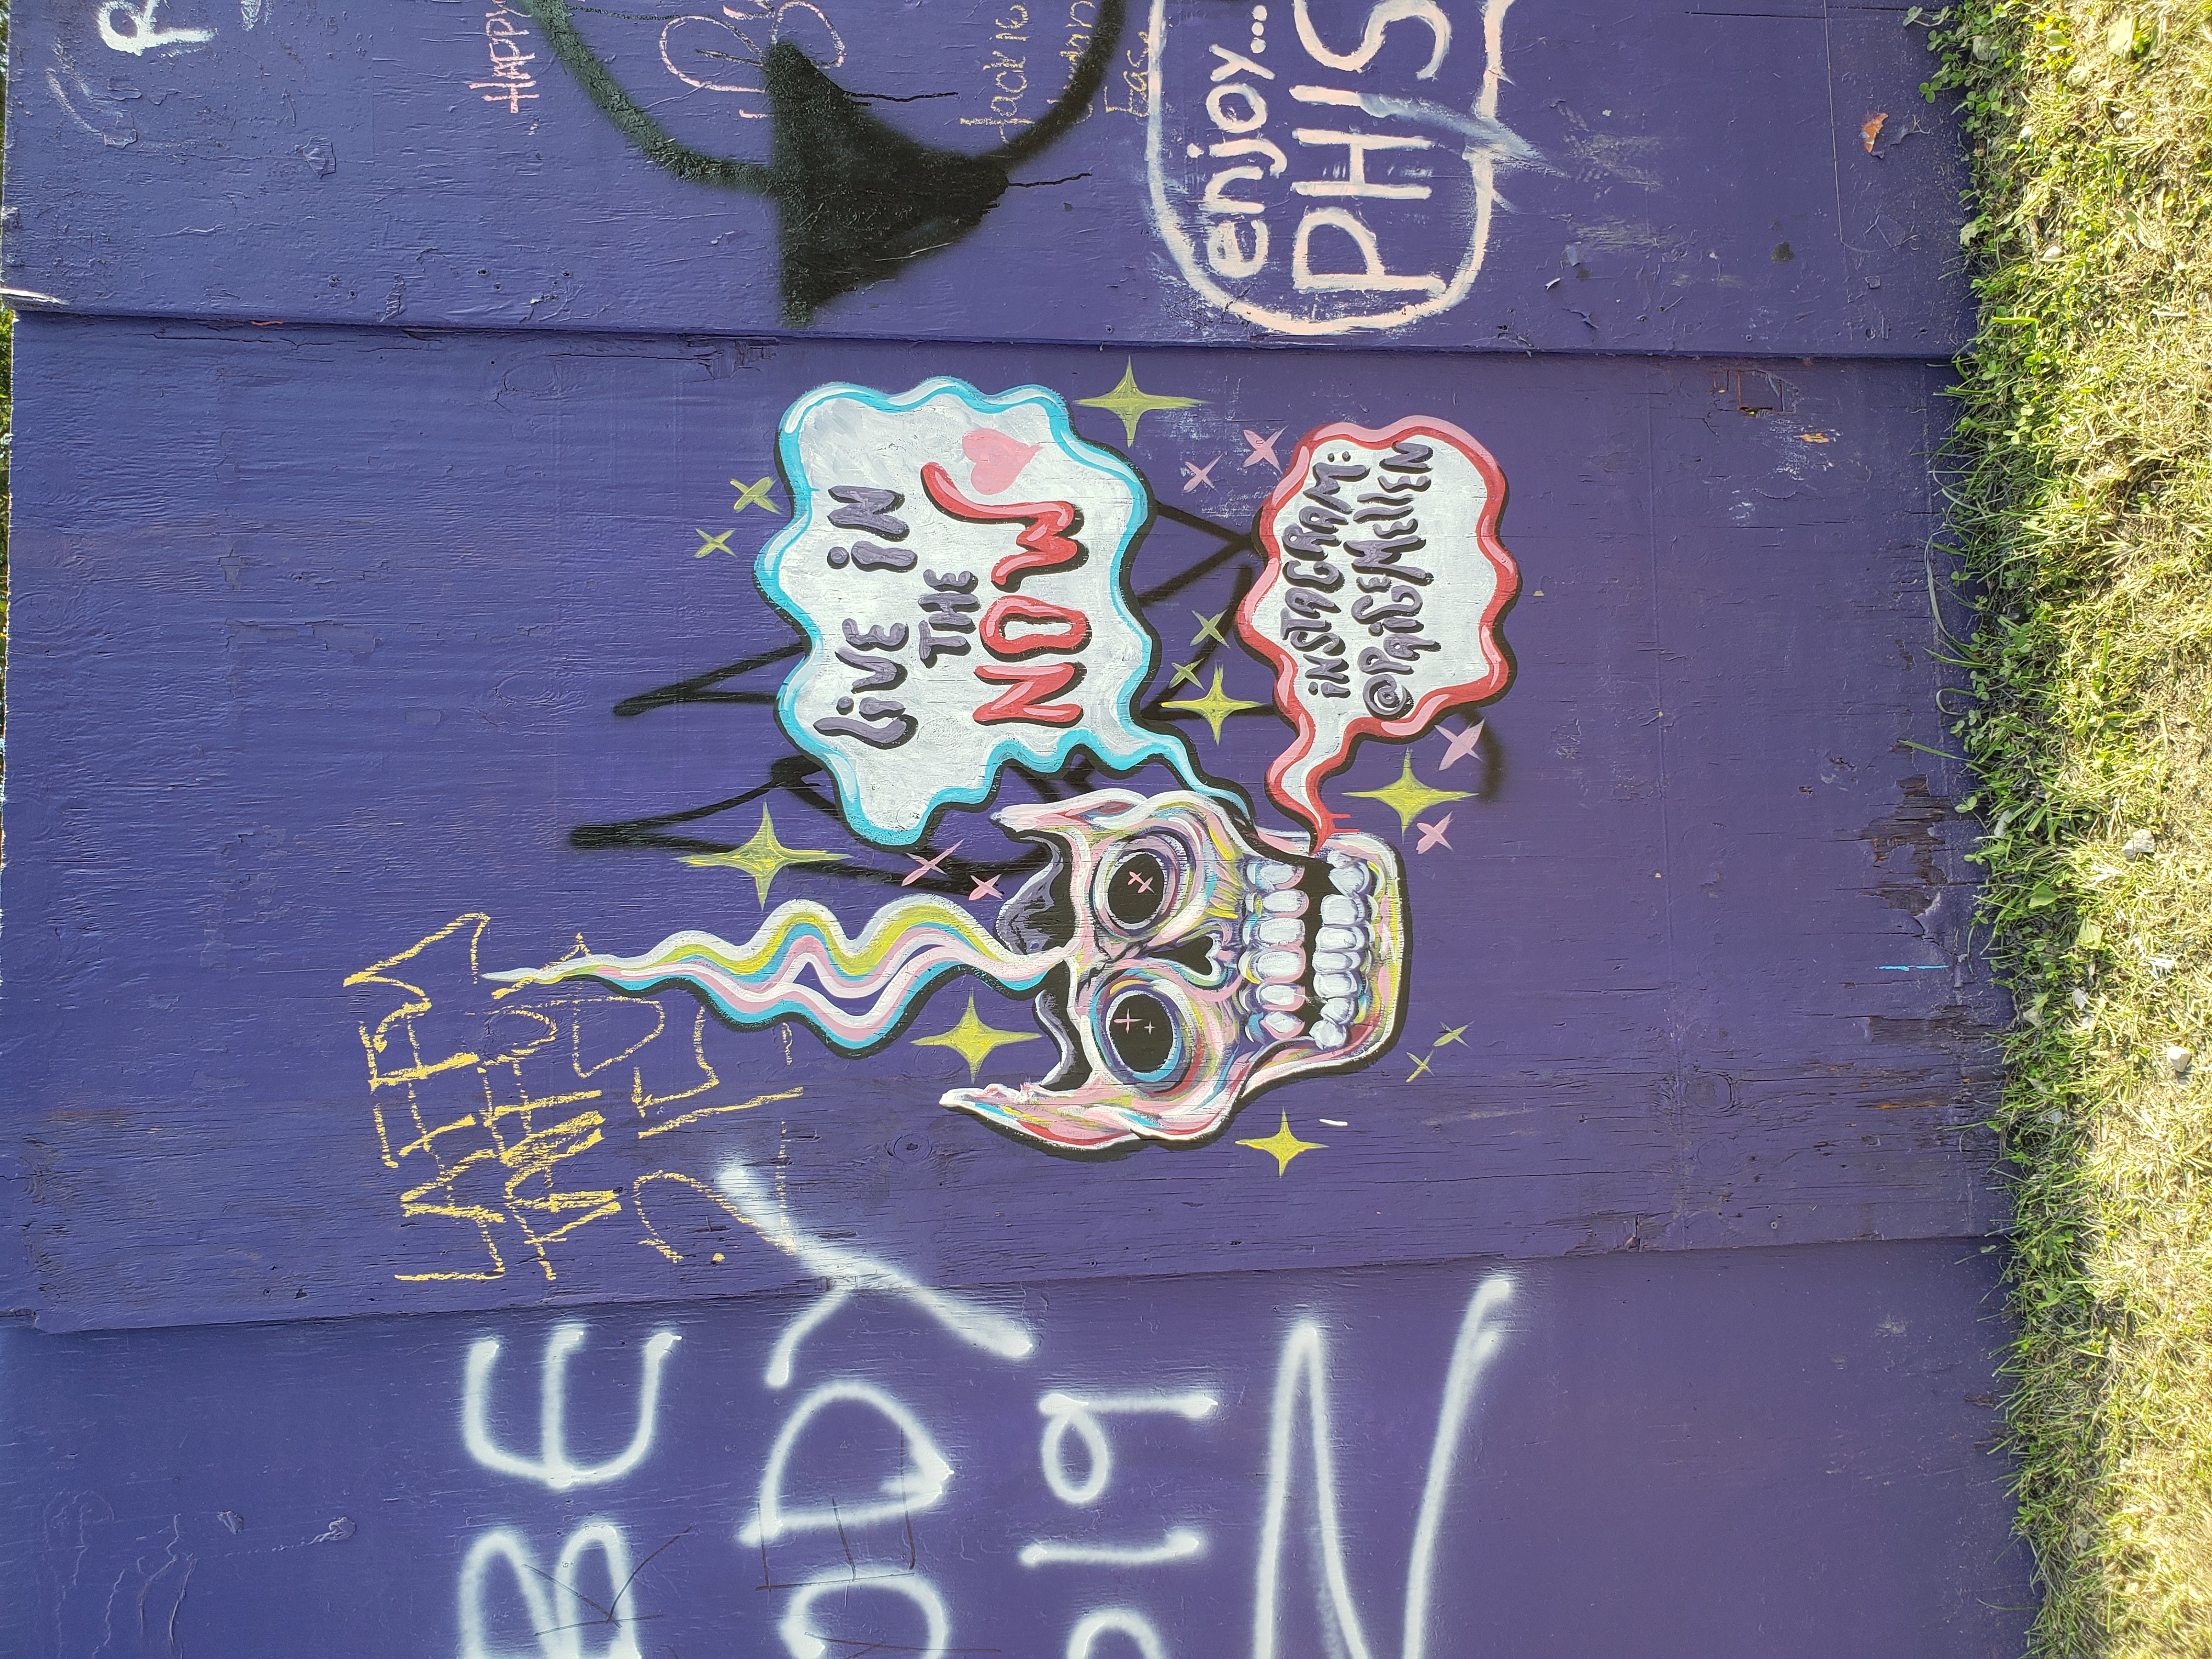 BE
ODY
19
LAFFY
TAFFY
LIVE IN
THE
NOW
INSTAGRAM:
@PAIGEMELLEN
HAPPY
Jackie
Jordan
Ease
enjoy...
PHIS